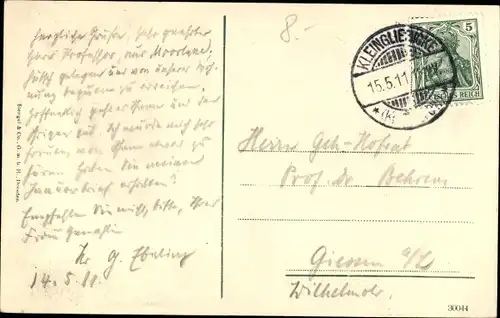 8.-
herzliche Grüße, sehr geehrter
Herr Professor, aus
hübsch gelegen und von unserer Woh-
nung bequem zu erreichen.
Hoffentlich geht es Ihnen und den
Ihrigen gut. Ich würde mich sehr
freuen, von Ihnen etwas zu
hören. Haben Sie meinen
Januarbrief erhalten?
Empfehlen Sie mich, bitte, Ihrer
Frau Gemahlin
Ihr G. Ebeling
14.5.11.
Stengel & Co., G. m. b. H., Dresden.
KLEINGLIENICKE
15.5.11
5
DEUTSCHES REICH
Herrn Geh. Hofrat
Prof. Dr. Behrens
Giessen a/L
Wilhelmstr.
30044